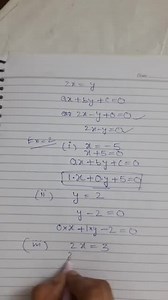 2x = y
ax+by+c=0
2x-y+0=0
2x-y=0
Ex=2 (i) x = -5
x+5=0
ax+by+c=0
1·x+0y+5=0
(ii) y = 2
y-2=0
0×x+1×y-2=0
(iii) 2x = 3